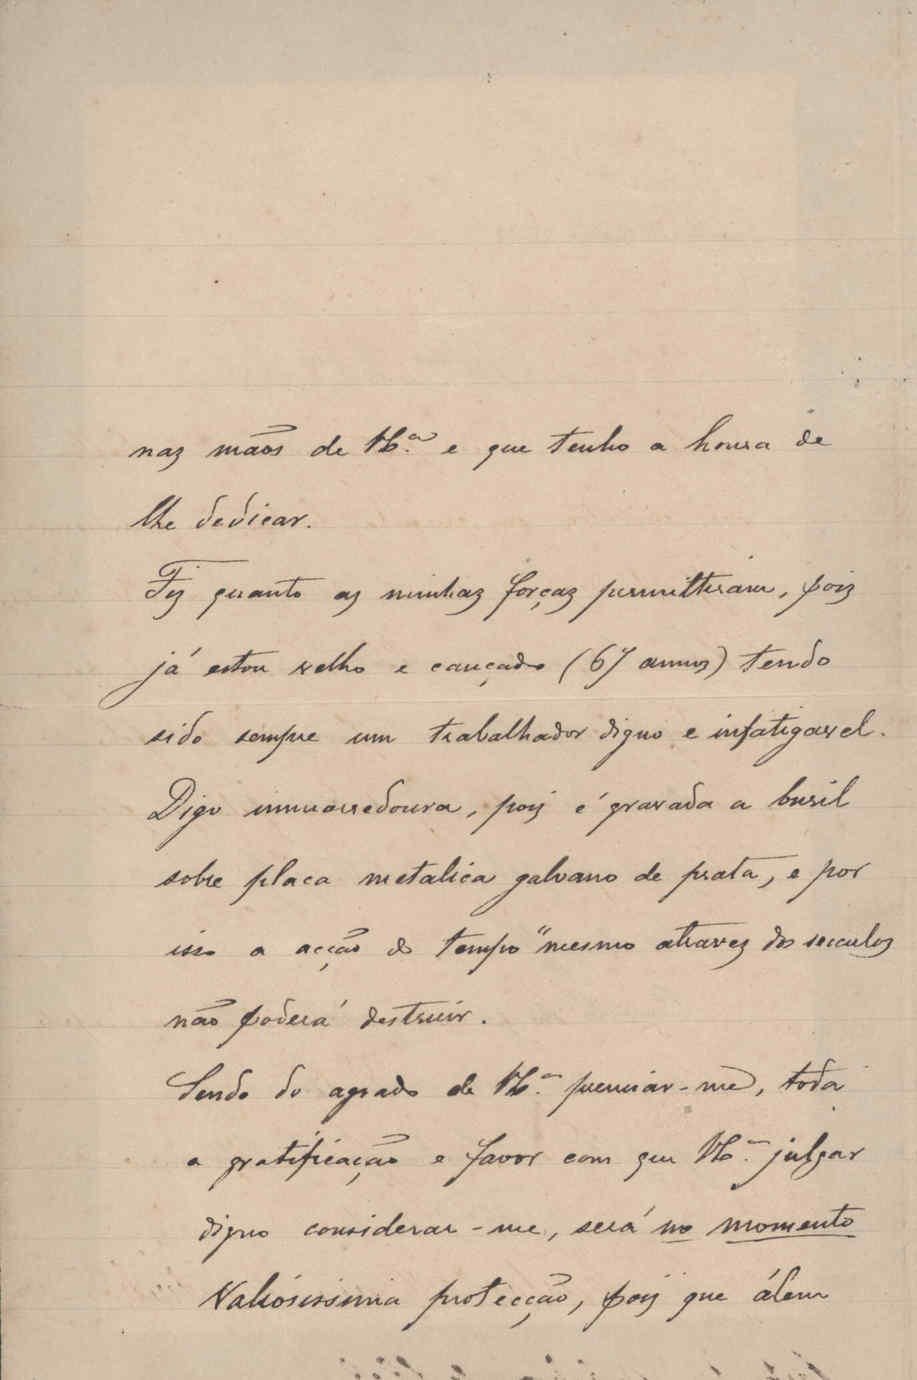 nas mãos de Vª. e que tenho a honra de
lhe dedicar.
Fiz quanto as minhas forças permittiram, pois
já estou velho e cançado (67 annos) tendo
sido sempre um trabalhador digno e infatigavel.
Digo immorredoura, pois é gravada a buril
sobre placa metalica galvano de prata, e por
isso a acção do tempo "mesmo atravez dos seculos
não poderá destruir.
Sendo do agrado de premiar-me, toda
a gratificação e favor com que julgar
digno considerar-me, será no momento
Valiósissima protecção, pois que álem